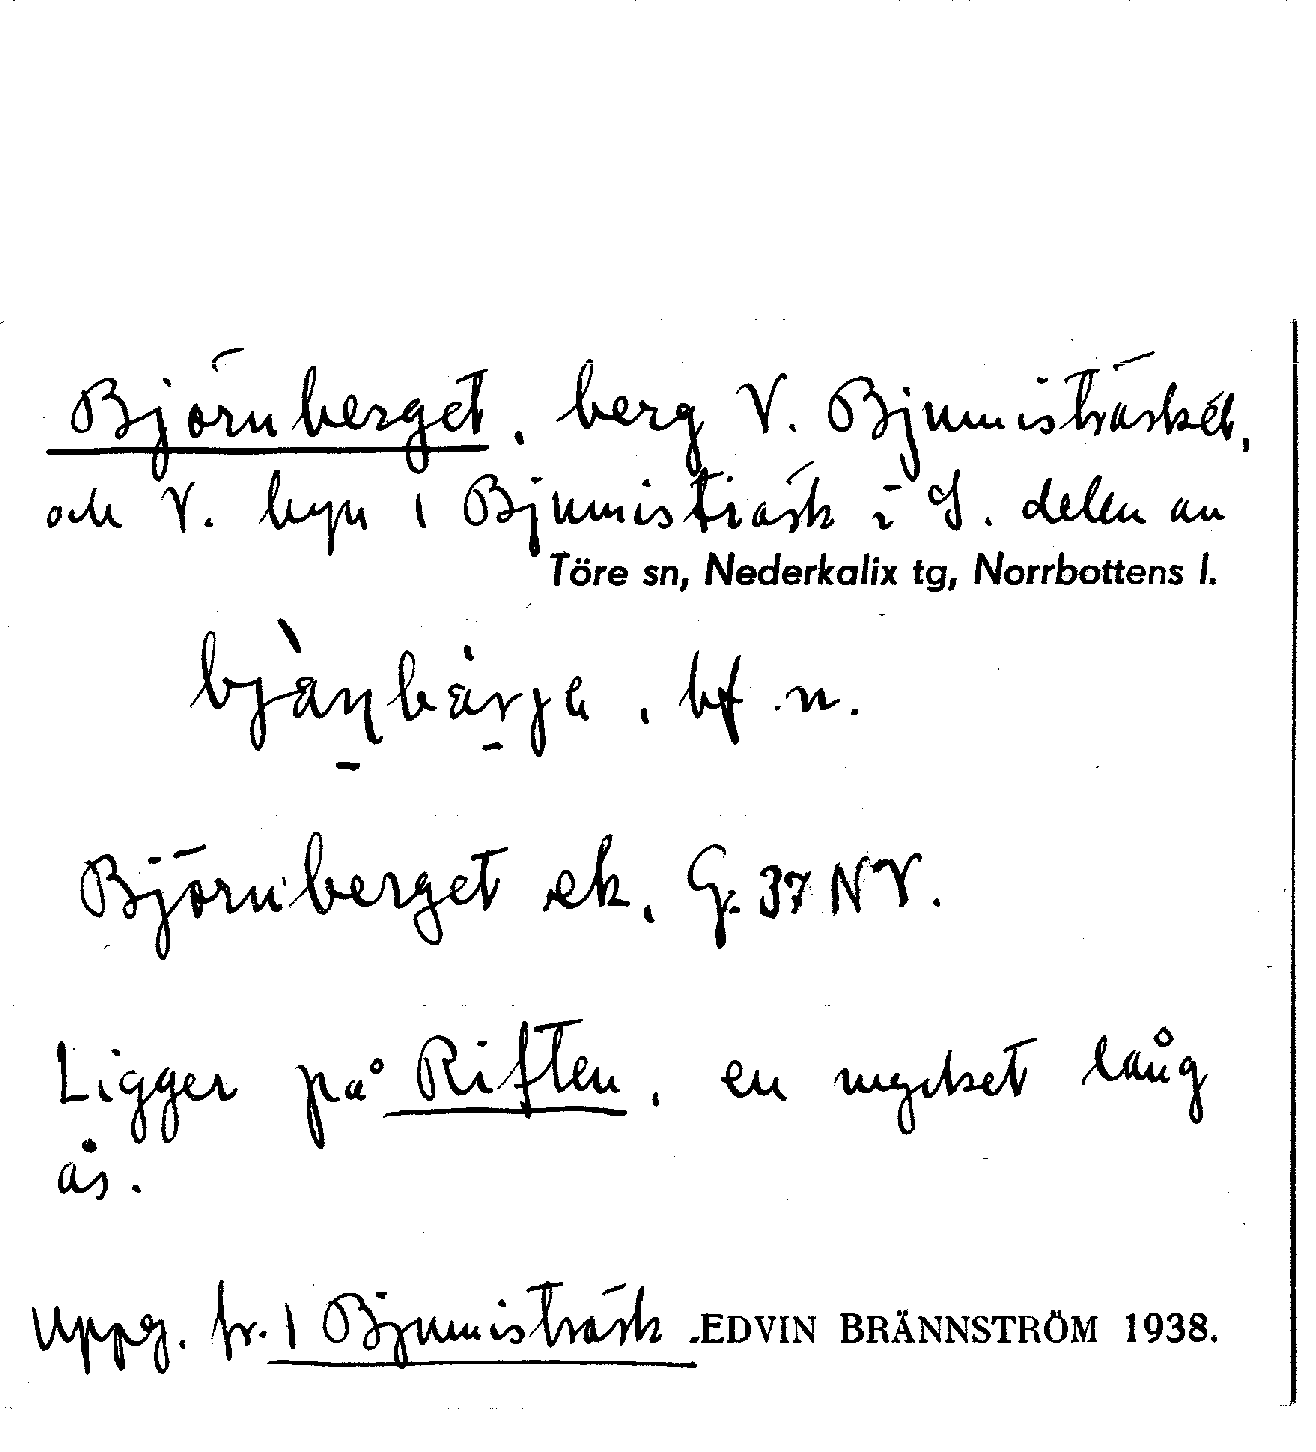 Björnberget, berg V. Bjumisträsket,
och V. byn 1 Bjumisträsk i S. delen av
Töre sn, Nederkalix tg, Norrbottens l.
bf. n.
Björnberget ek. G. 37 NV.
Ligger på Riften, en mycket lång
ås.
Uppg. fr. 1 Bjumisträsk. EDVIN BRÄNNSTRÖM 1938.